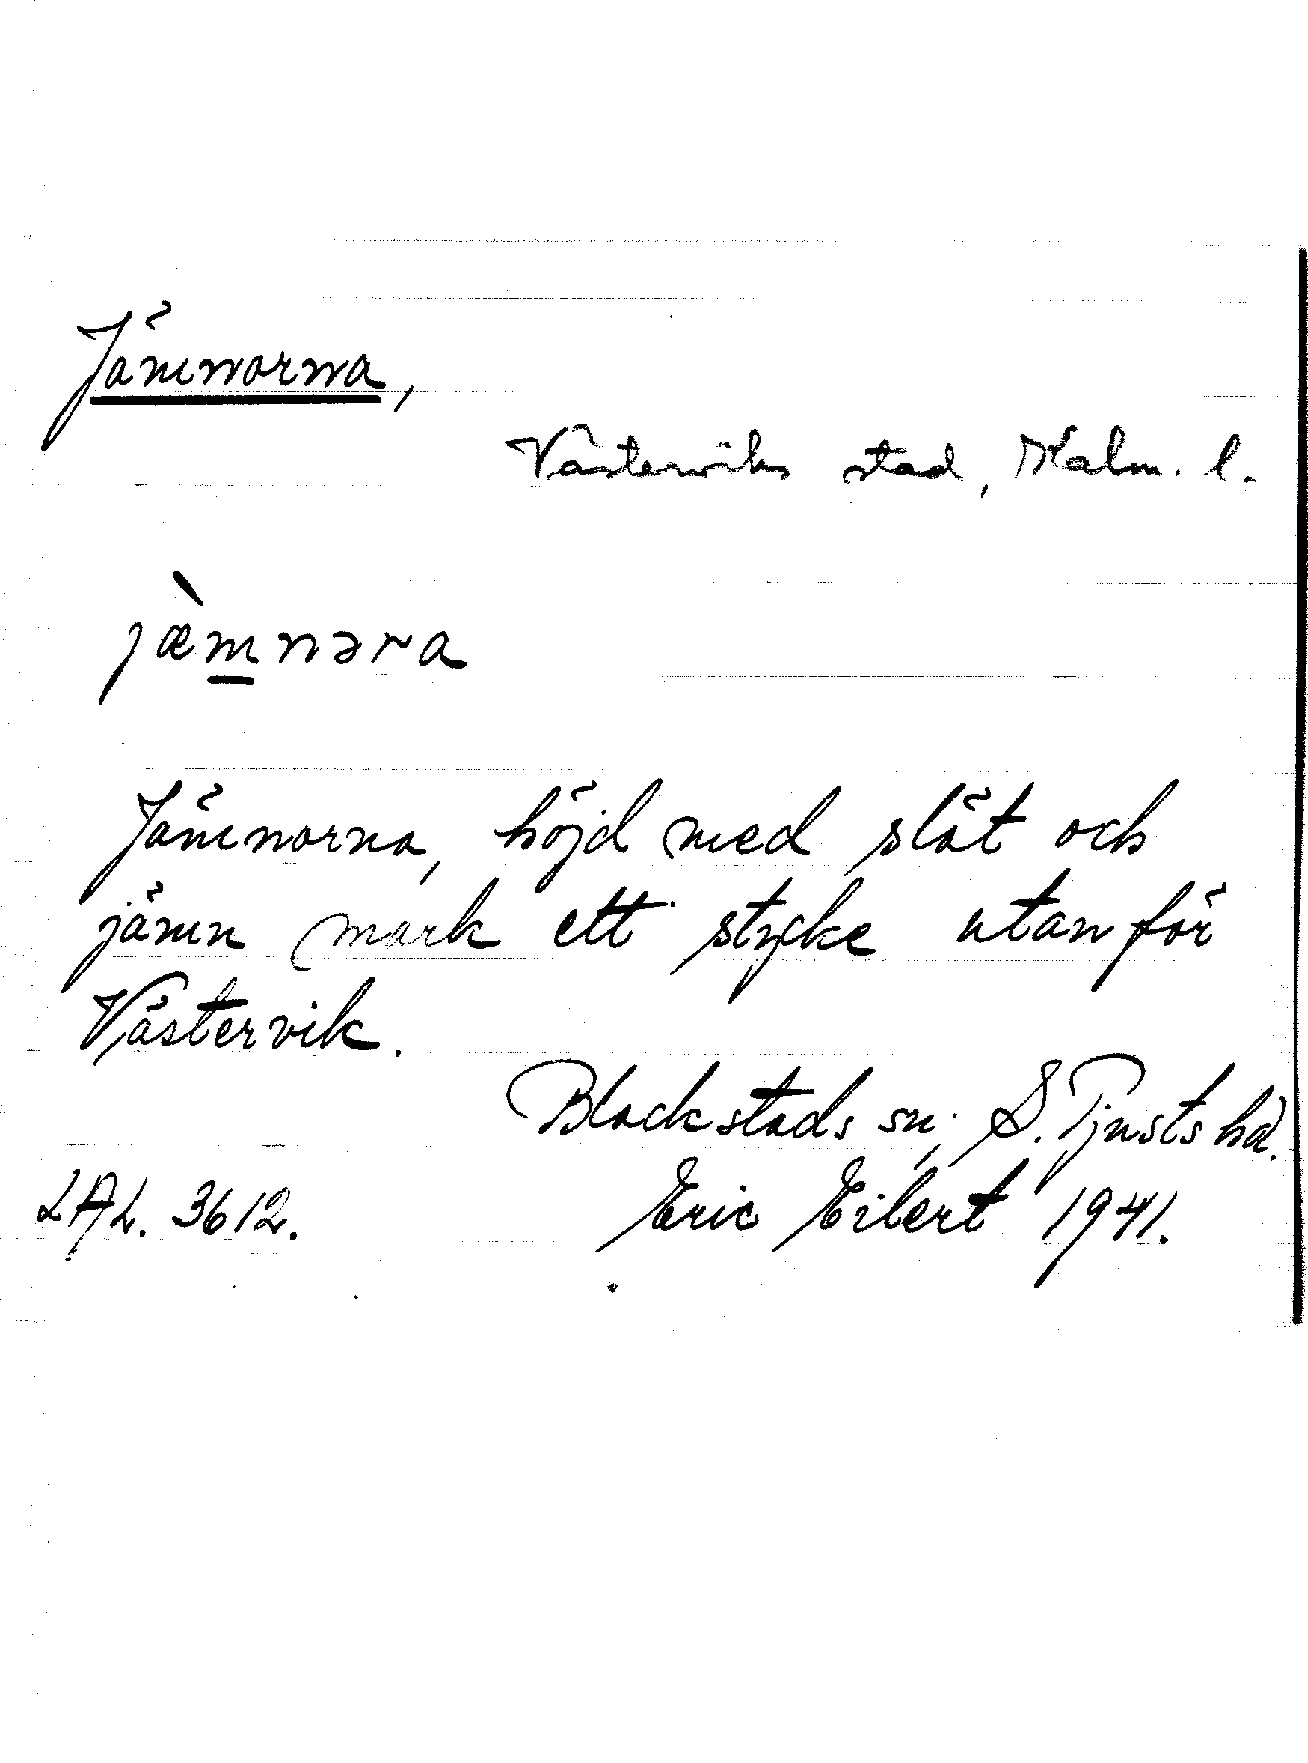 Jämnorna,
Västerviks stad, Kalm. l.
jæ̀m̲nəra
Jämnorna, höjd med slät och
jämn mark ett stycke utanför
Västervik.
Blackstads sn; S. Tjusts hd.
LAL. 3612.
Eric Eilert 1941.